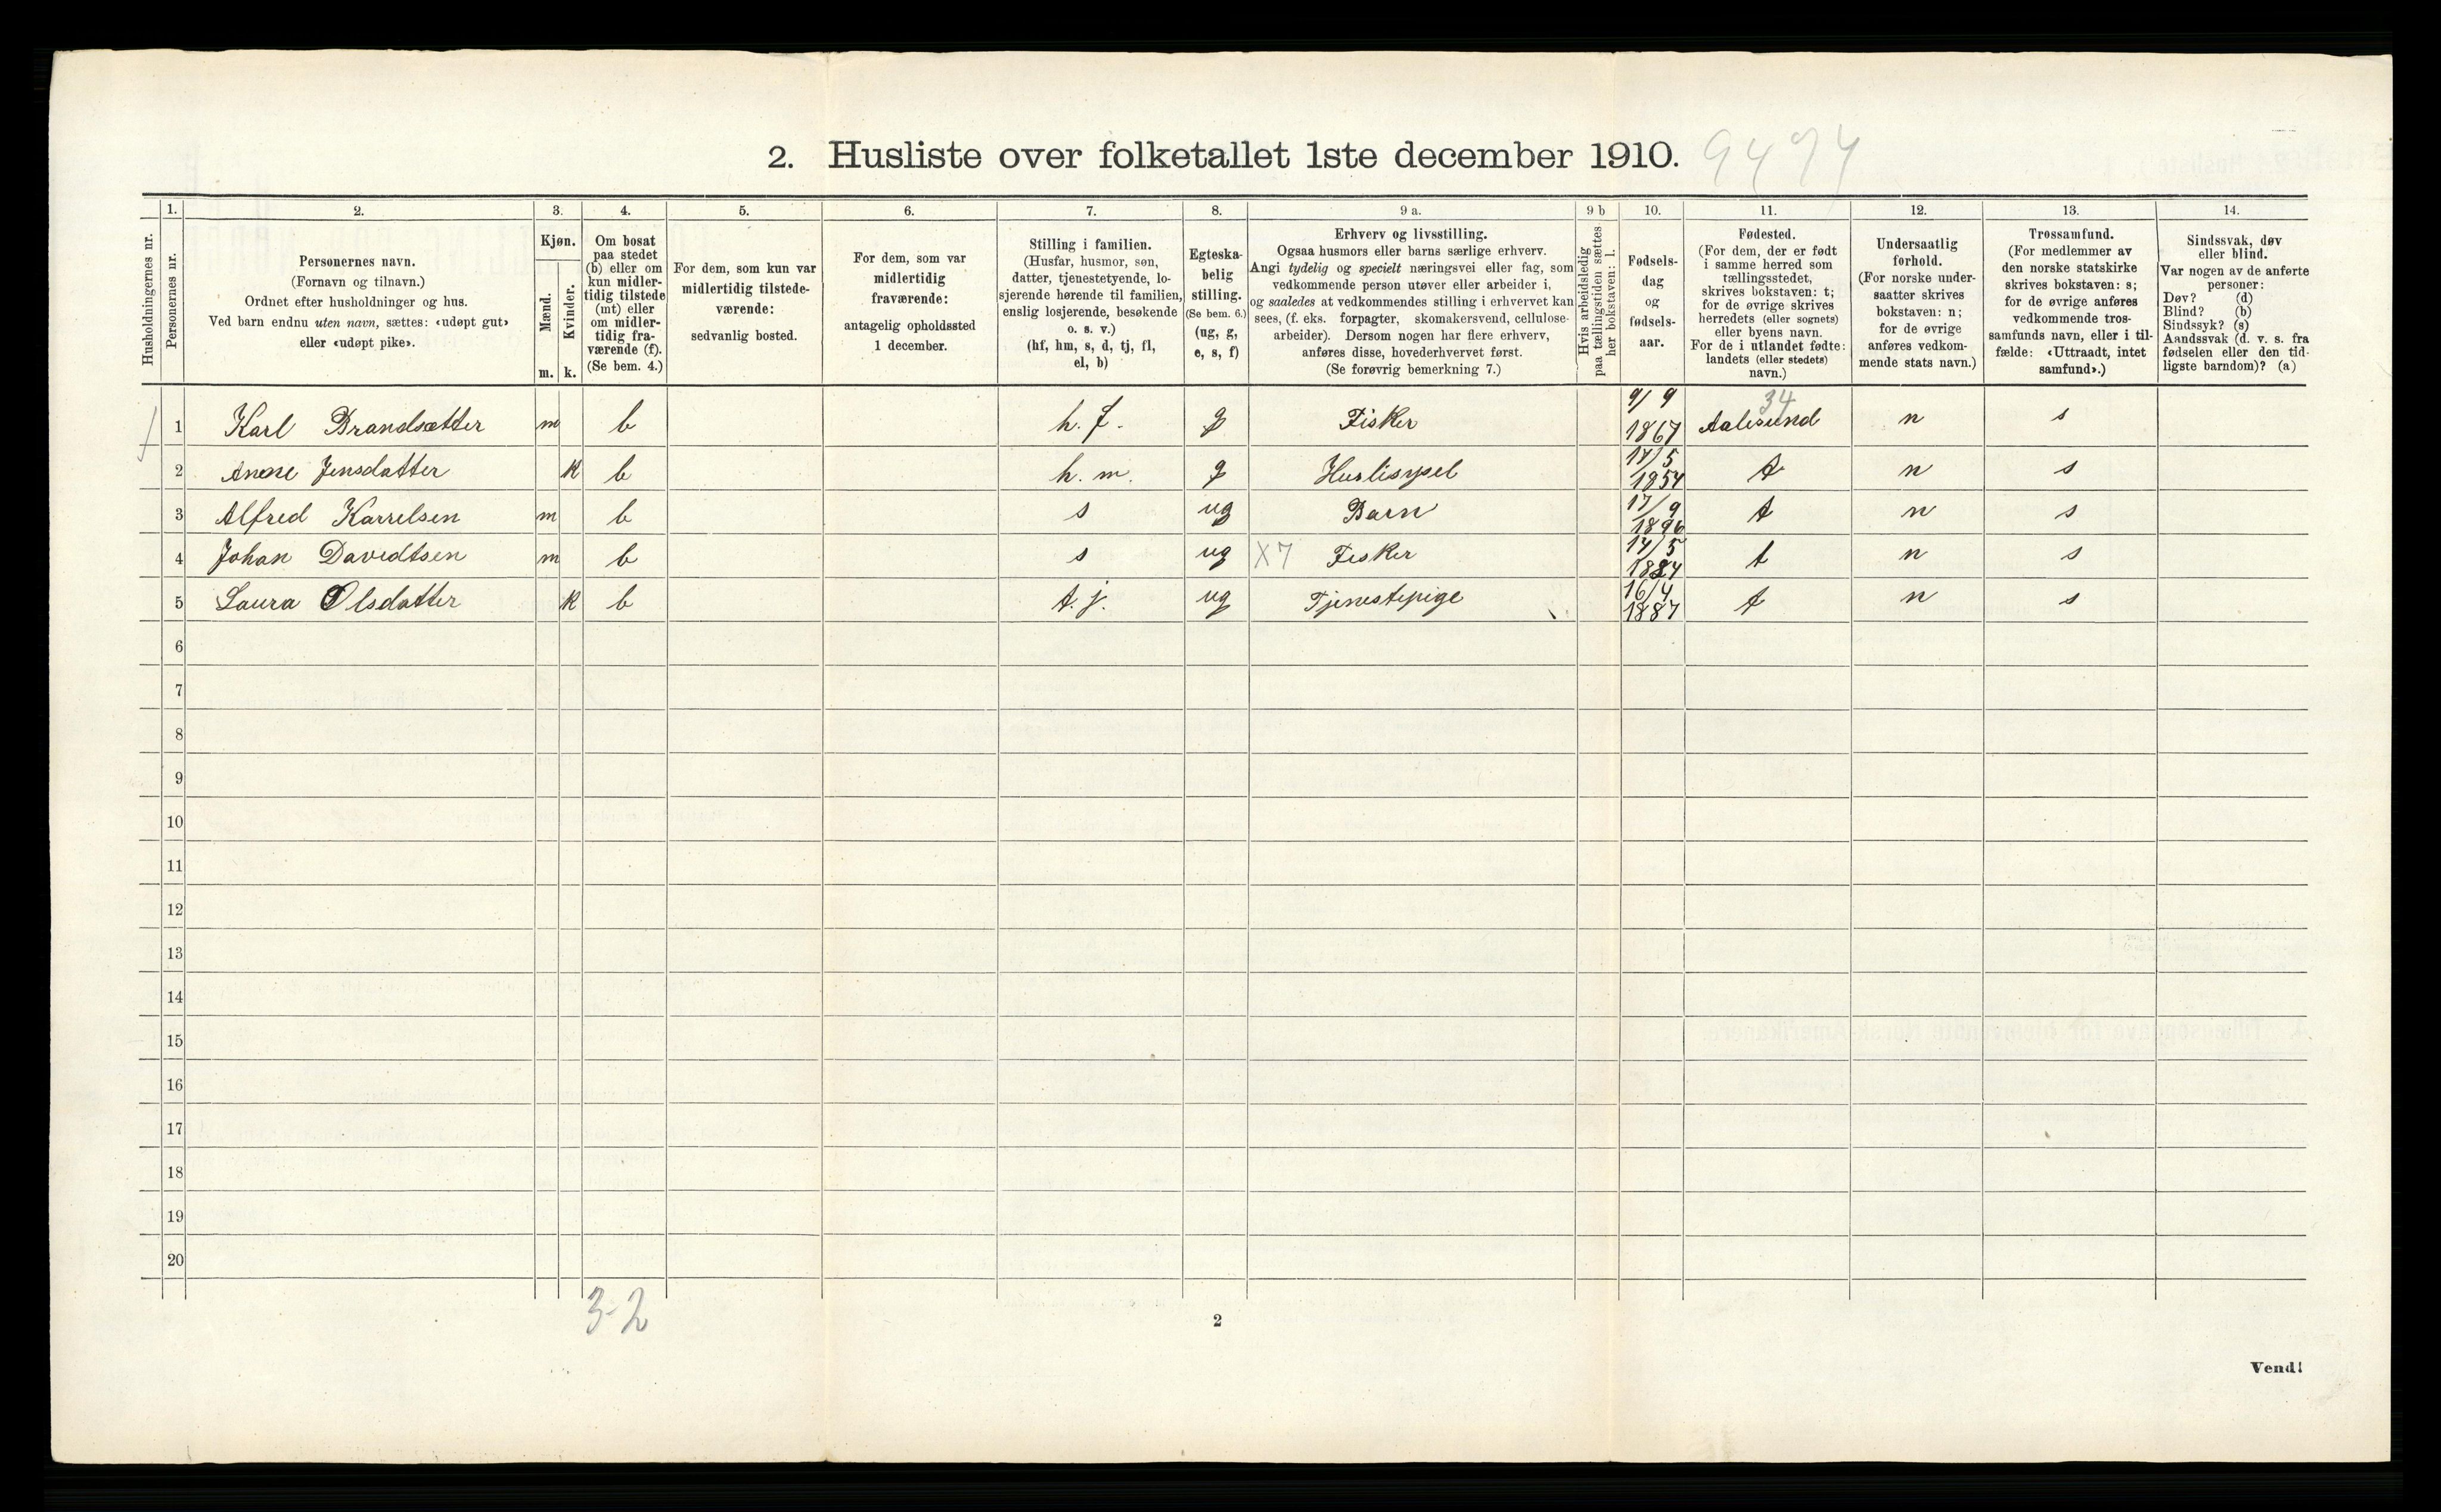 2. Husliste over folketallet 1ste december 1910. 9494
Husholdningernes nr.
1.
Personernes nr.
2.
Personernes navn.
(Fornavn og tilnavn.)
Ordnet efter husholdninger og hus.
Ved barn endnu uten navn, sættes: «udøpt gut»
eller «udøpt pike».
3.
Kjøn.
Mænd.
Kvinder.
m. k.
4.
Om bosat
paa stedet
(b) eller om
kun midler-
tidig tilstede
(mt) eller
om midler-
tidig fra-
værende (f).
(Se bem. 4.)
5.
For dem, som kun var
midlertidig tilstede-
værende:
sedvanlig bosted.
6.
For dem, som var
midlertidig
fraværende:
antagelig opholdssted
1 december.
7.
Stilling i familien.
(Husfar, husmor, søn,
datter, tjenestetyende, lo-
sjerende hørende til familien,
enslig losjerende, besøkende
o. s. v.)
(hf, hm, s, d, tj, fl,
el, b)
8.
Egteska-
belig
stilling.
(Se bem. 6.)
(ug, g,
e, s, f)
9 a.
Erhverv og livsstilling.
Ogsaa husmors eller barns særlige erhverv.
Angi tydelig og specielt næringsvei eller fag, som
vedkommende person utøver eller arbeider i,
og saaledes at vedkommendes stilling i erhvervet kan
sees, (f. eks. forpagter, skomakersvend, cellulose-
arbeider). Dersom nogen har flere erhverv,
anføres disse, hovederhvervet først.
(Se forøvrig bemerkning 7.)
9 b
Hvis arbeidsledig
paa tællingstiden sættes
her bokstaven: l.
10.
Fødsels-
dag
og
fødsels-
aar.
11.
Fødested.
(For dem, der er født
i samme herred som
tællingsstedet,
skrives bokstaven: t;
for de øvrige skrives
herredets (eller sognets)
eller byens navn.
For de i utlandet fødte:
landets (eller stedets)
navn.)
12.
Undersaatlig
forhold.
(For norske under-
saatter skrives
bokstaven: n;
for de øvrige
anføres vedkom-
mende stats navn.)
13.
Trossamfund.
(For medlemmer av
den norske statskirke
skrives bokstaven: s;
for de øvrige anføres
vedkommende tros-
samfunds navn, eller i til-
fælde: «Uttraadt, intet
samfund».)
14.
Sindssvak, døv
eller blind.
Var nogen av de anførte
personer:
Døv? (d)
Blind? (b)
Sindssyk? (s)
Aandssvak (d. v. s. fra
fødselen eller den tid-
ligste barndom)? (a)
1 Karl Brandsætter m b h. f. g Fisker 9/9 1867 34 Aalesund n s
2 Anne Jensdatter k b h. m. g Huslisysel 17/5 1854 t n s
3 Alfred Karrelsen m b s ug Barn 17/9 1896 t n s
4 Johan Davidtsen m b s ug X7 Fisker 14/5 1884 t n s
5 Laura Olsdatter k b t. j. ug Tjenestepige 16/4 1887 t n s
6
7
8
9
10
11
12
13
14
15
16
17
18
19
20
3-2
2
Vend!